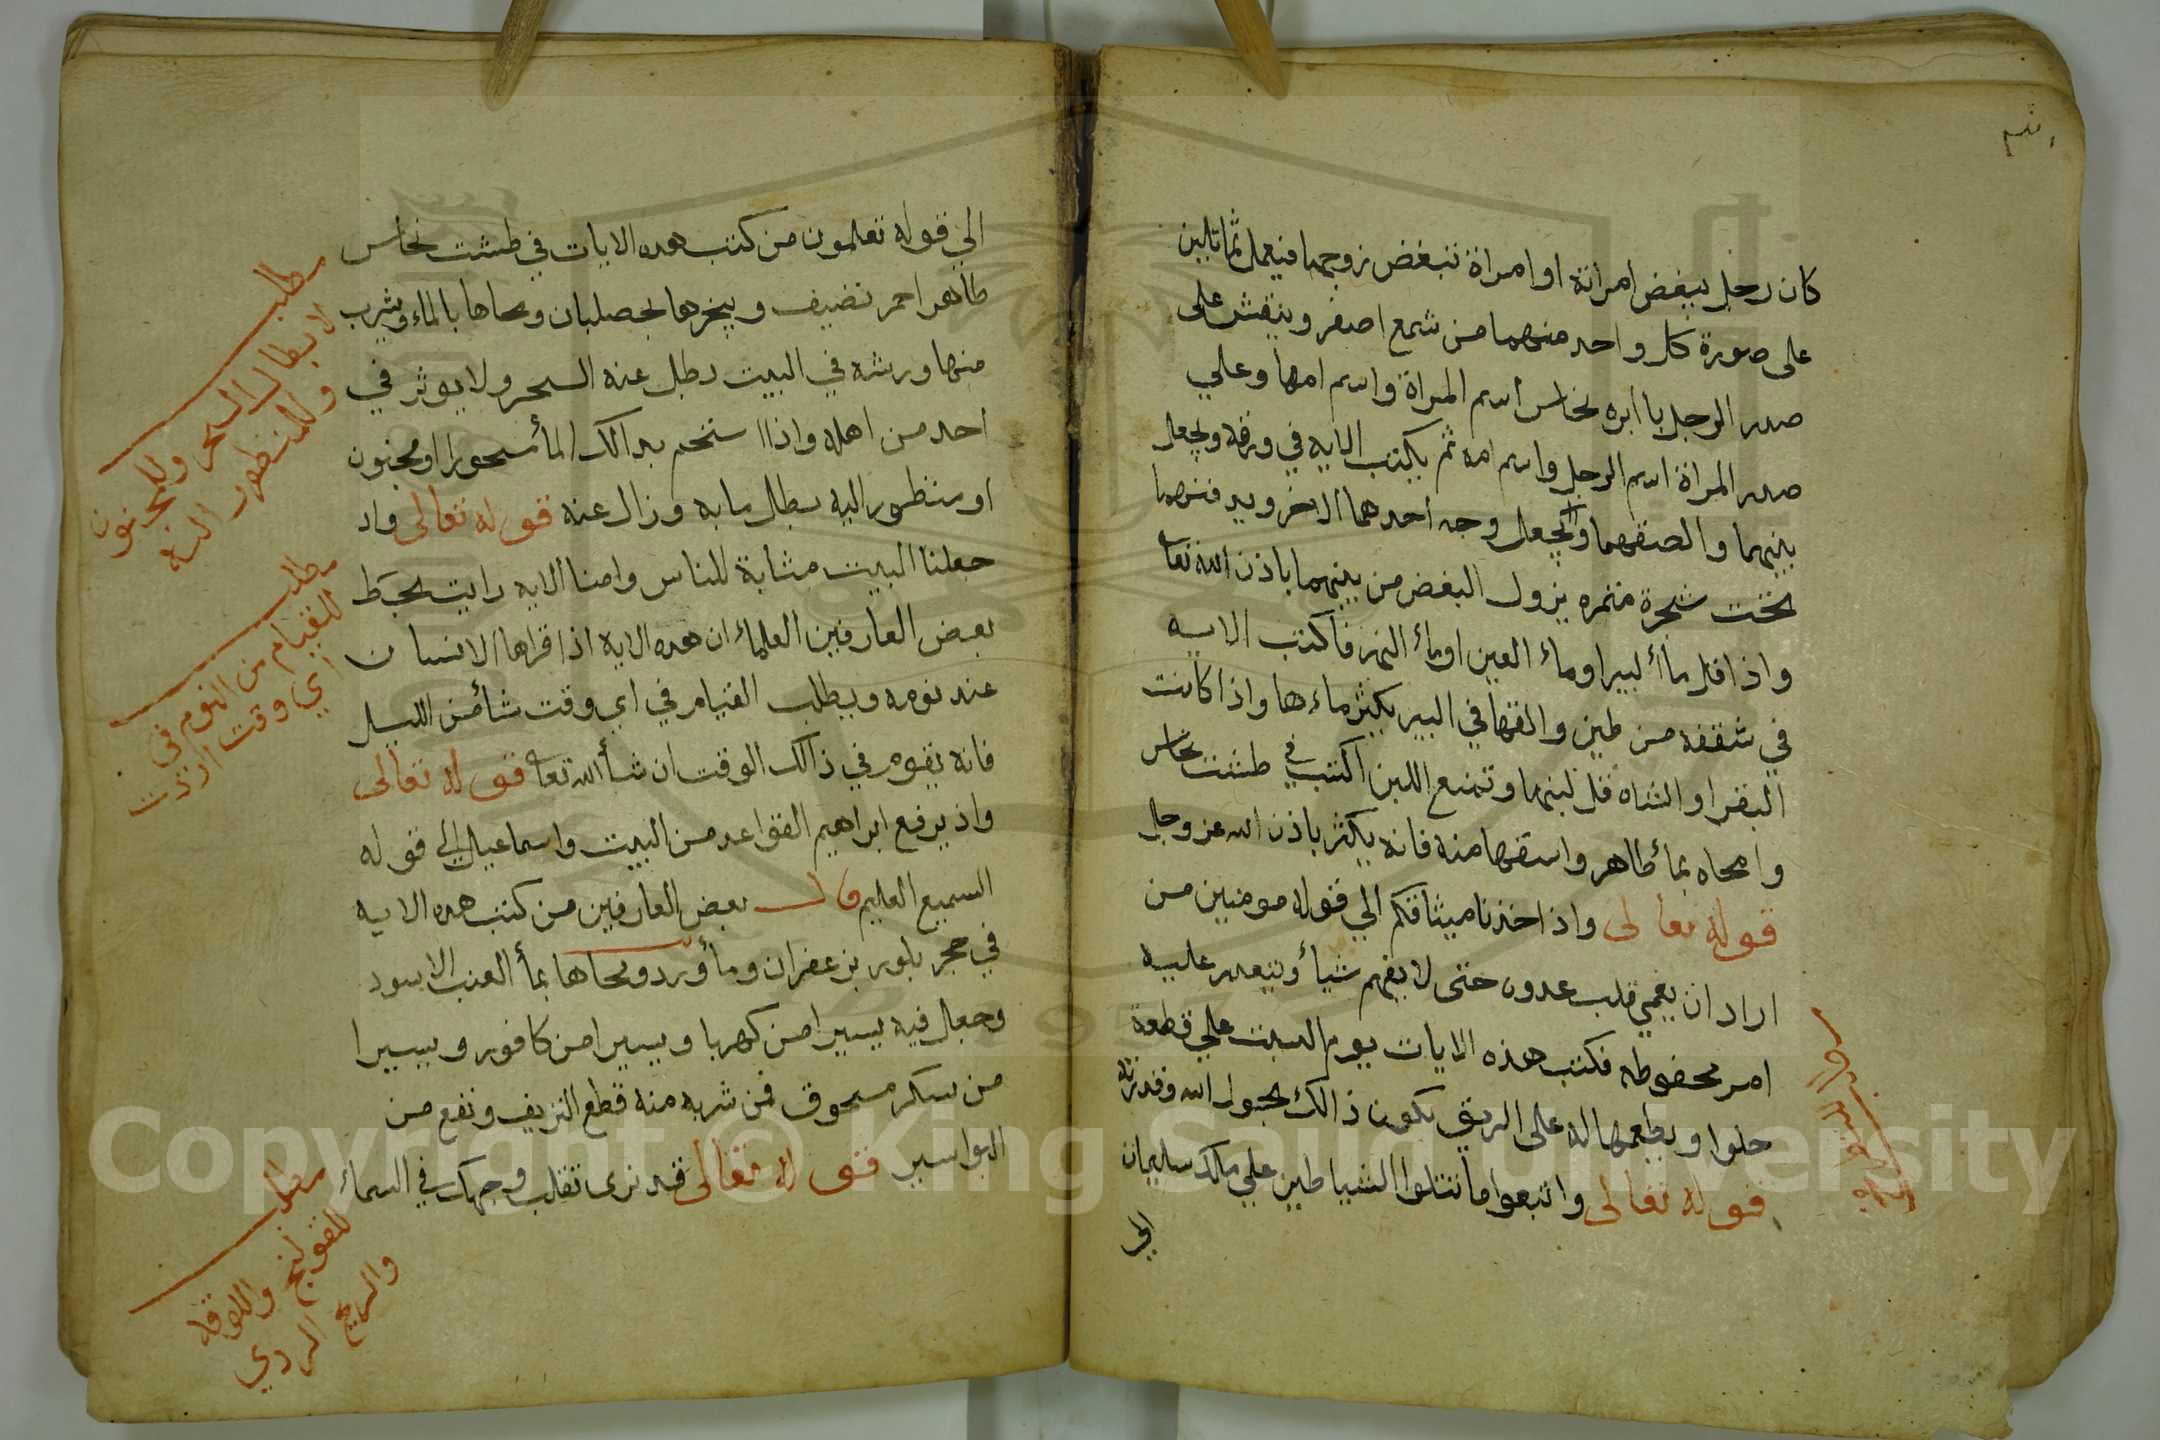 كان رجل يبغض امراته او امراة تبغض زوجها فيعمل تماثلين
على صورة كل واحد منهما من شمع اصفر وينقش على
صدر الرجل با ابره نحاس اسم المراة واسم امها وعلي
صدر المراة اسم الرجل واسم امه ثم يكتب الايه في ورقه ويجعل
بينهما والصقهما واجعل وجه احدهما الاخر ويدفنهما
تحت شجرة مثمره يزول البغض من بينهما باذن الله تعا
واذا قل ماأ لبير او ماء العين او مأ النهر فاكتب الايه
في شقفه من طين والقها في البير يكثر ماءها واذا كانت
البقر او الشاه قل لبنها وتمنع اللبن اكتب في طشت نحاس
وامحاه بمأ طاهر واسقها منه فانه يكثر باذن الله عز وجل
قوله تعالى واذ اخذنا ميثاقكم الي قوله مومنين من
اراد ان يعمي قلب عدوه حتى لا يفهم شيأ ويتعسر عليه
امر محفوظه فكتب هذه الايات يوم السبت علي قطعة
حلوا ويطعمها له على الريق يكون ذالك بحول الله وقدرته
قوله تعالى واتبعوا ما تتلوا الشياطين علي ملك سليمان
الي
الي قوله تعلمون من كتب هده الايات في طشت نحاس
طاهر احمر نضيف ويبخرها بحصلبان ومحاها بالماء ويشرب
منها ورشه في البيت بطل عنه السحر ولا يوثر في
احد من اهله واذا استحم بدالك المأ مسحورا او مجنون
او منظور اليه بطل ما به وزال عنه قوله تعالى واد
جعلنا البيت مثابة للناس وامنا الايه رايت بخط
بعض العارفين العلماء ان هده الاية اذا قراها الانسان
عند نومه ويطلب القيام في اي وقت شأ من الليل
فانه يقوم في ذالك الوقت ان شأ الله تعا قوله تعالى
واذ يرفع ابراهيم القواعد من البيت واسماعيل الي قوله
السميع العليم قال بعض العارفين من كتب هده الايه
في حجر بلور بزعفران ومأ ورد ومحاها بمأ العنب الاسود
وجعل فيه يسيرا من كهربا ويسيرا من كافور ويسيرا
من سكر مسحوق فمن شربه منه قطع النزيف ونفع من
البواسير قوله تعالى قد نرى تقلب وجهك في السماء
مطلب
لابطال السحر وللمجنون
وللمنظور اليه
مطلب
للقيام من النوم في
اي وقت اردت
مطلب
للقولنج واللوقه
والريح الردي
Copyright © King Saud University